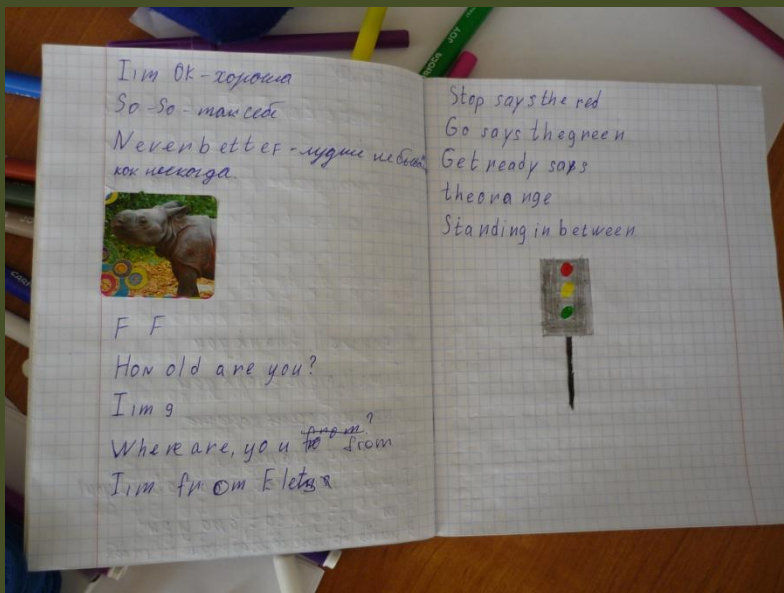 I,m OK - хороша
So - So - так себе
Never better - лудше не бывает
как некогда.
F F
How old are you?
I,m 9
Where are, you from?
I,m from Elets
Stop says the red
Go says thegreen
Get ready says
theorange
Standing in between
CARIOCA JOY